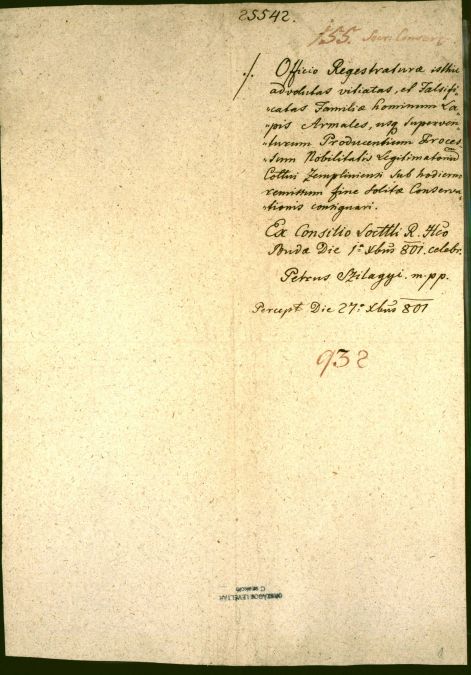 25542.
155. Secri Conserv
./. Officio Regestraturæ isthic
advolutas vitiatas, et Falsifi-
-catas Familiæ hominum La-
-pis Armales, usq superven-
-turum Producentium Proces
-sum Nobilitatis Legitimatorium
Cottui Zempliniensi sub hodierno
remissum fine solitæ Conserva-
-tionis consignari.
Ex Consilio Locttli R. Hco
Budæ Die 1ª Xbris 801. celebr.
Petrus Szilagyi. mpp.
Percept Die 27ª Xbris 801
932
ORSZÁGOS LEVÉLTÁR
C szekció